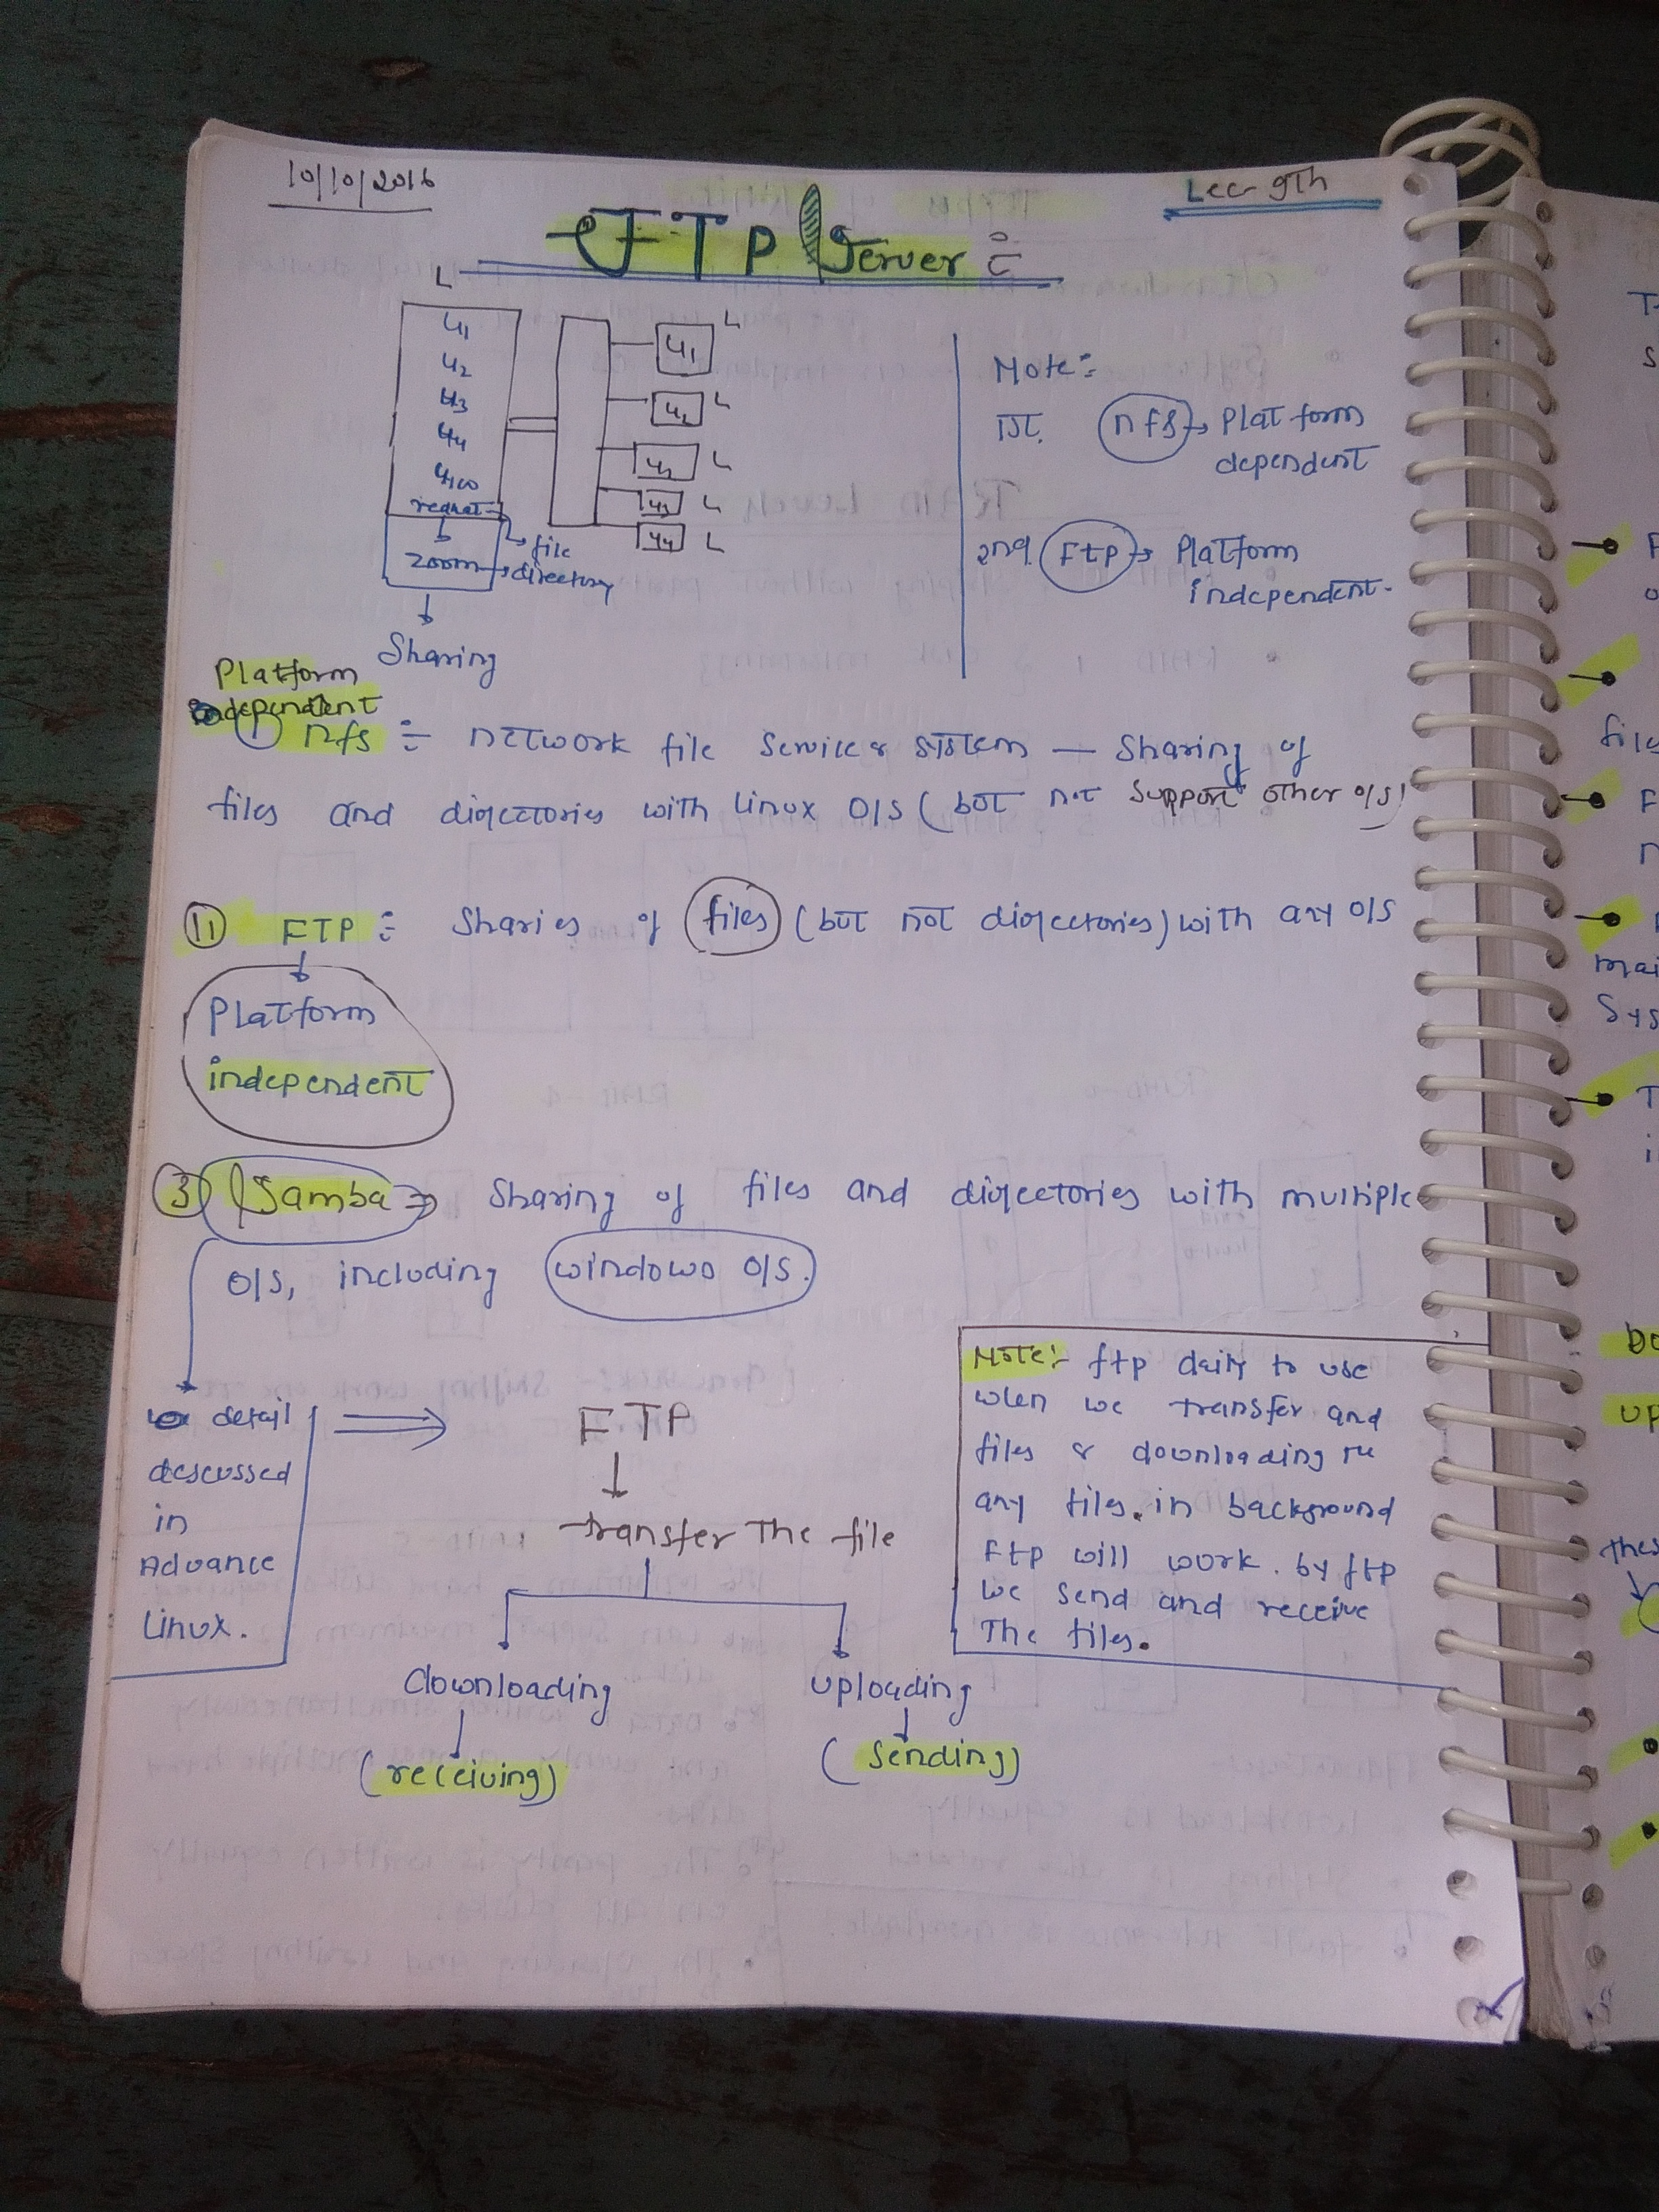 10/10/2016
Lec-9th
FTP Server :
L
u1
u2
u3
u4
u100
zoom
file
directory
Sharing
u1 L
u2 L
u3 L
L
u4 L
Note:-
1st. nfs → Platform
dependent
2nd. Ftp → Platform
independent.
Platform
independent
① nfs :- network file Service & system — Sharing of
files and directories with linux O/S (but not support other o/s)
⑪ FTP :- Sharies of files (but not directories) with any O/S
Platform
independent
③ Samba ⇒ Sharing of files and directories with multiple
O/S, including windows O/S.
detail
descussed
in
Advance
Linux.
⇒ FTP
transfer The file
downloading
(receiving)
uploading
(sending)
Note:- ftp daily to use
wlen we transfer and
files & downloading
any files. in background
Ftp will work. by ftp
we send and receive
The files.